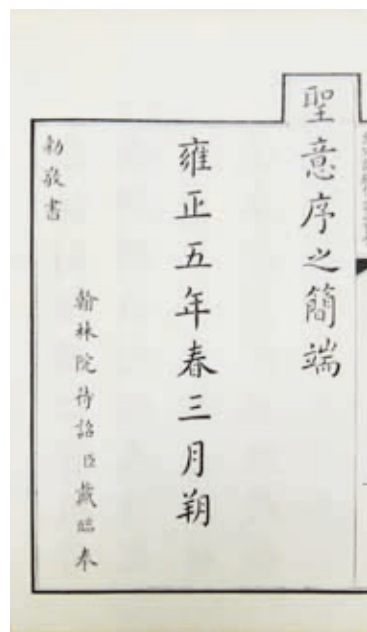 聖意序之簡端
雍正五年春三月朔
翰林院待詔臣戴臨奉
勅敬書